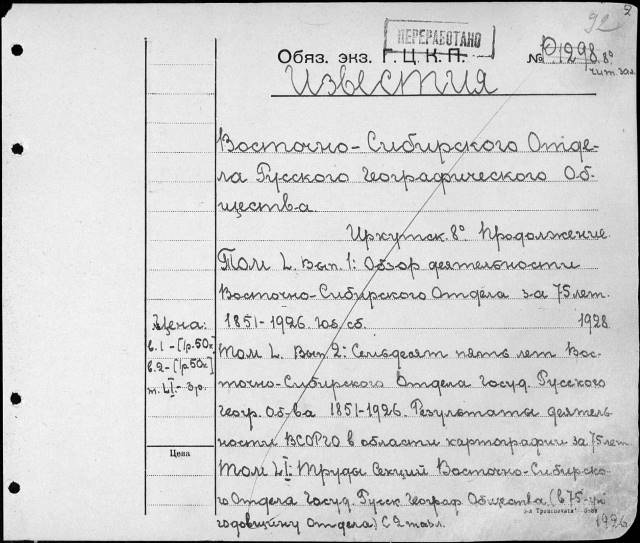 2
92
ПЕРЕРАБОТАНО
Обяз. экз. Г. Ц. К. П.
№ 1298 8°
чит. зал.
Известия
Восточно-Сибирского Отде-
ла Русского Географического Об-
щества.
Иркутск. 8° Продолжение.
Том L. Вып. 1: Обзор деятельности
Восточно-Сибирского Отдела за 75 лет.
1851-1926. Юб. сб. 1928
Том L. Вып 2: Семьдесят пять лет Вос-
точно-Сибирского Отдела Госуд. Русского
Геогр. Об-ва 1851-1926. Результаты деятель
ности ВСОРГО в области картографии за 75 лет
Том LI: Труды Секций Восточно-Сибирско-
го Отдела Госуд. Русск Географ Общества (в 75-ую
годовщину Отдела) С 2 табл.
1926
Цена:
в. 1 - [1р. 50к
в. 2 - [1р. 50к]
т. LI. - 3 р.
Цена